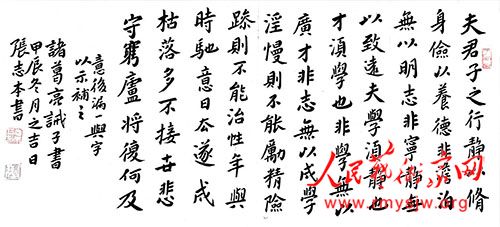 夫君子之行靜以脩
身儉以養德非澹泊
無以明志非寧靜無
以致遠夫學須靜也
才須學也非學無以
廣才非志無以成學
淫慢則不能勵精險
躁則不能治性年與
時馳意日去遂成
枯落多不接世悲
守窮廬將復何及
意後漏一與字
以示補之
諸葛亮誡子書
甲辰冬月之吉日
張志本書
人民艺术家网